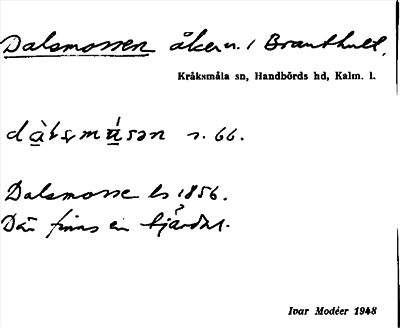 Dalsmossen åkern. i Branthult.
Kråksmåla sn, Handbörds hd, Kalm. l.
s. 66.
Dalsmosse ls 1856.
Där finns en tjärdal.
Ivar Modéer 1948